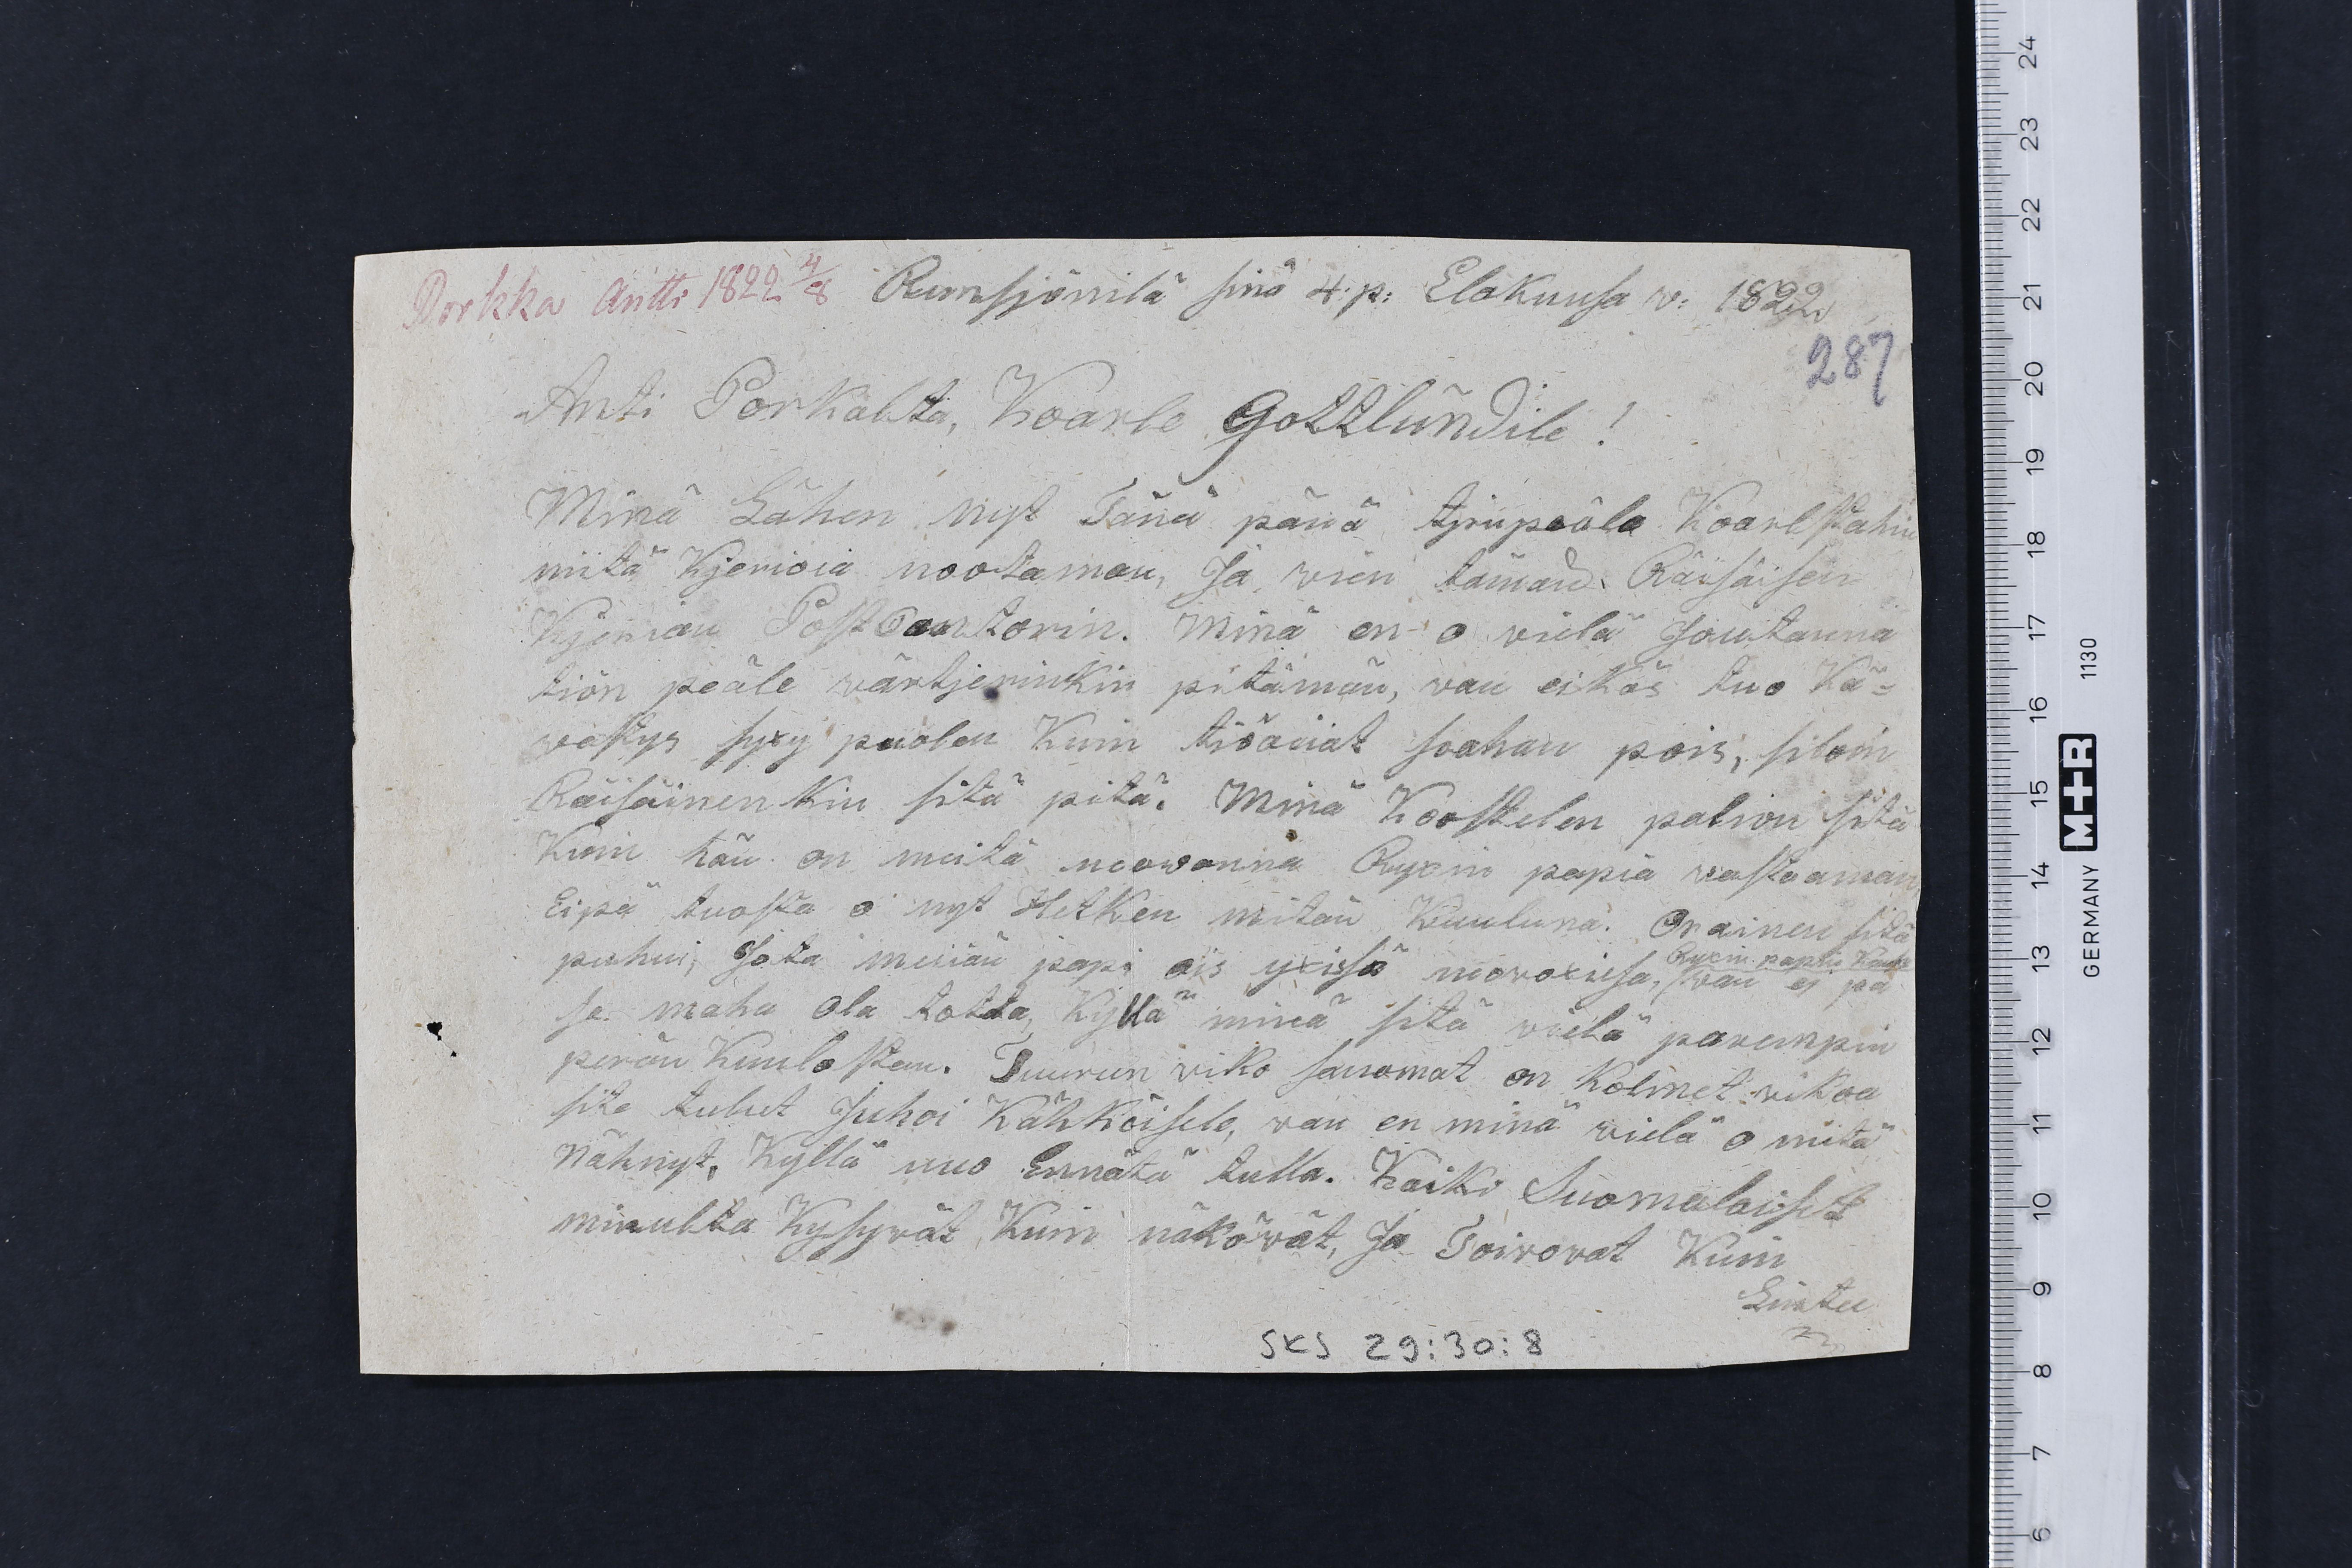 Porkka Antti 1822 4/8 Rumsjönilä sinä 4. p: Elokuusa v: 1822
287
Anti Porkalta, Koarle Gottlundile!
Minä Lähen nyt Tänä pänä tjinpeäla Koarlstahin
mitä Kjerioia nootaman, Ja vien tämand Räisäisen
Kjerian Postcontorin. Minä en o vielä Joutanna
tiön peäle värtjerinkin pitämän, van eikäs tuo Kä=
västys syxy puolen Kuin tiöäiät soahan pois, siloin
Räisäinenkin sitä pitä. Minä Koostelen palion sitä
Kuin hän on meitä neovonna Ryxin papia vastaaman,
Eipä tuosta o nyt Hetken mitän Kuuluna. Orainen sitä
puhui, Jota meiän papi ois yxissä nevoxiesa, Ryxin papin Kansa van ej pä
se maha Ola totta, Kyllä minä sitä vielä parempin
perän Kuulostan. Tuurun viko sanomat on Kolmet vikoa
site tulut Juhoi Kähköisele, van en minä vielä o mitä
Nähnyt, Kyllä nuo Ennätä tulla. Kaiki Suomalaiset
minulta Kysyvät, Kuin näkövät, Ja Toivovat Kuin
Lintu
SKS 29:30:8
24
23
22
21
20
19
18
17
16
15
14
13
12
11
10
9
8
7
6
GERMANY M+R 1130